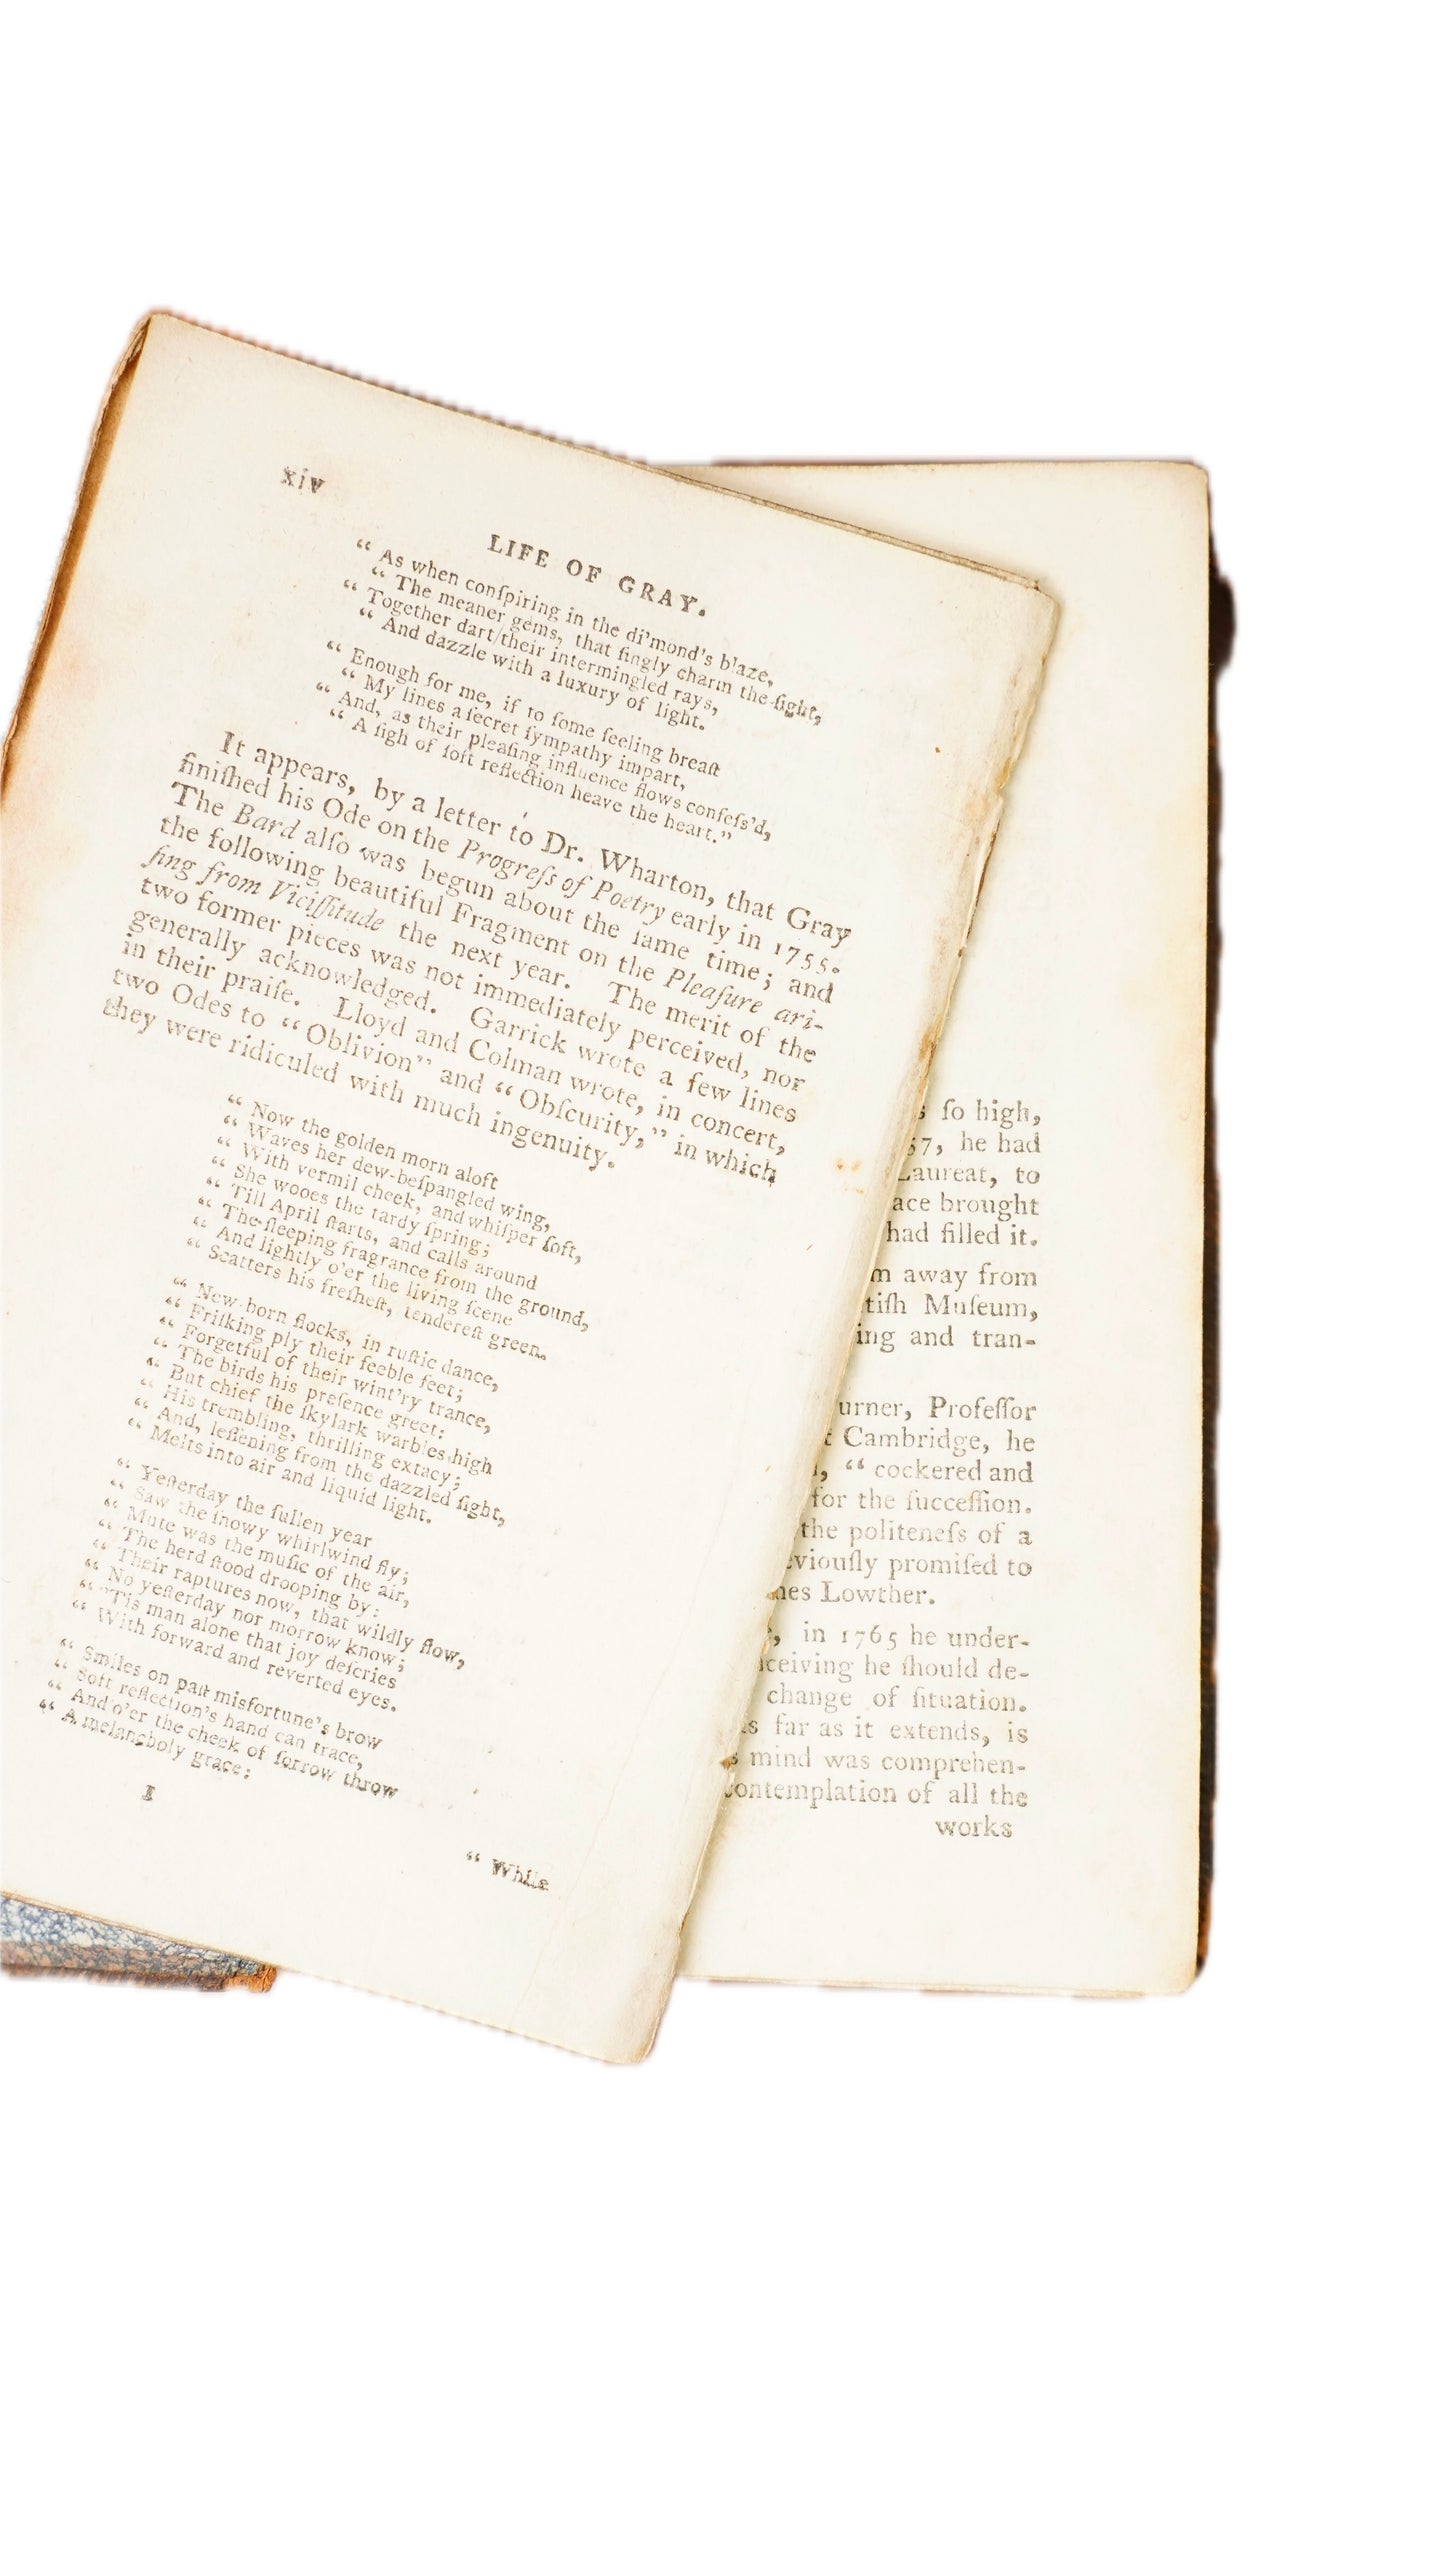 xiv
LIFE OF GRAY.
“ As when conſpiring in the di'mond's blaze,
“ The meaner gems, that ſingly charm the ſight,
“ Together dart their intermingled rays,
“ And dazzle with a luxury of light.
“ Enough for me, if to ſome feeling breaſt
“ My lines a ſecret ſympathy impart,
“ And, as their pleaſing influence flows confeſs'd,
“ A ſigh of ſoft reflection heave the heart.”
It appears, by a letter to Dr. Wharton, that Gray
finiſhed his Ode on the Progreſs of Poetry early in 1755.
The Bard alſo was begun about the ſame time; and
the following beautiful Fragment on the Pleaſure ari-
ſing from Viciſſitude the next year. The merit of the
two former pieces was not immediately perceived, nor
generally acknowledged. Garrick wrote a few lines
in their praiſe. Lloyd and Colman wrote, in concert,
two Odes to “ Oblivion” and “ Obſcurity,” in which
they were ridiculed with much ingenuity.
“ Now the golden morn aloft
“ Waves her dew-beſpangled wing,
“ With vermil cheek, and whiſper ſoft,
“ She wooes the tardy ſpring;
“ Till April ſtarts, and calls around
“ The ſleeping fragrance from the ground,
“ And lightly o'er the living ſcene
“ Scatters his freſheſt, tendereſt green.
“ New-born flocks, in ruſtic dance,
“ Friſking ply their feeble feet;
“ Forgetful of their wint'ry trance,
“ The birds his preſence greet:
“ But chief the ſkylark warbles high
“ His trembling, thrilling extacy;
“ And, leſſening from the dazzled ſight,
“ Melts into air and liquid light.
“ Yeſterday the ſullen year
“ Saw the ſnowy whirlwind fly;
“ Mute was the muſic of the air,
“ The herd ſtood drooping by:
“ Their raptures now, that wildly flow,
“ No yeſterday nor morrow know;
“ 'Tis man alone that joy deſcries
“ With forward and reverted eyes.
“ Smiles on paſt misfortune's brow
“ Soft reflection's hand can trace,
“ And o'er the cheek of ſorrow throw
“ A melancholy grace;
I
“ While
s ſo high,
57, he had
Laureat, to
ace brought
had filled it.
m away from
tiſh Muſeum,
ing and tran-
urner, Profeſſor
t Cambridge, he
“ cockered and
for the ſucceſſion.
the politeneſs of a
eviouſly promiſed to
mes Lowther.
in 1765 he under-
ceiving he ſhould de-
change of ſituation.
as far as it extends, is
s mind was comprehen-
contemplation of all the
works